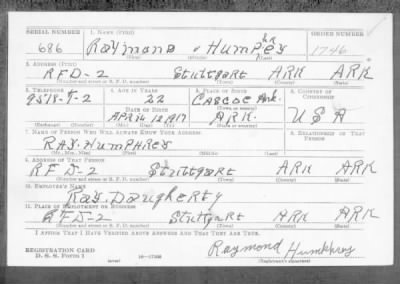 SERIAL NUMBER 1. NAME (Print) ORDER NUMBER
686 Raymond v Humphrey 1746
(First) (Middle) (Last)
2. ADDRESS (Print)
RFD-2 Stuttgart ARK ARK
(Number and street or R. F. D. number) (Town) (County) (State)
3. TELEPHONE 4. AGE IN YEARS 5. PLACE OF BIRTH 6. COUNTRY OF CITIZENSHIP
22 Cascoe Ark.
DATE OF BIRTH (Town or county)
APRIL 12 1917 ARK. USA
(Exchange) (Number) (Mo.) (Day) (Yr.) (State or country)
7. NAME OF PERSON WHO WILL ALWAYS KNOW YOUR ADDRESS 8. RELATIONSHIP OF THAT PERSON
RAY. HUMPHREY
(Mr., Mrs., Miss) (First) (Middle) (Last)
9. ADDRESS OF THAT PERSON
RFD-2 Stuttgart ARK ARK
(Number and street or R. F. D. number) (Town) (County) (State)
10. EMPLOYER'S NAME
Ray. Daugherty
11. PLACE OF EMPLOYMENT OR BUSINESS
RFD-2 Stuttgart ARK ARK
(Number and street or R. F. D. number) (Town) (County) (State)
I AFFIRM THAT I HAVE VERIFIED ABOVE ANSWERS AND THAT THEY ARE TRUE.
REGISTRATION CARD Raymond Humphrey
D. S. S. Form 1 (over) (Registrant's signature)